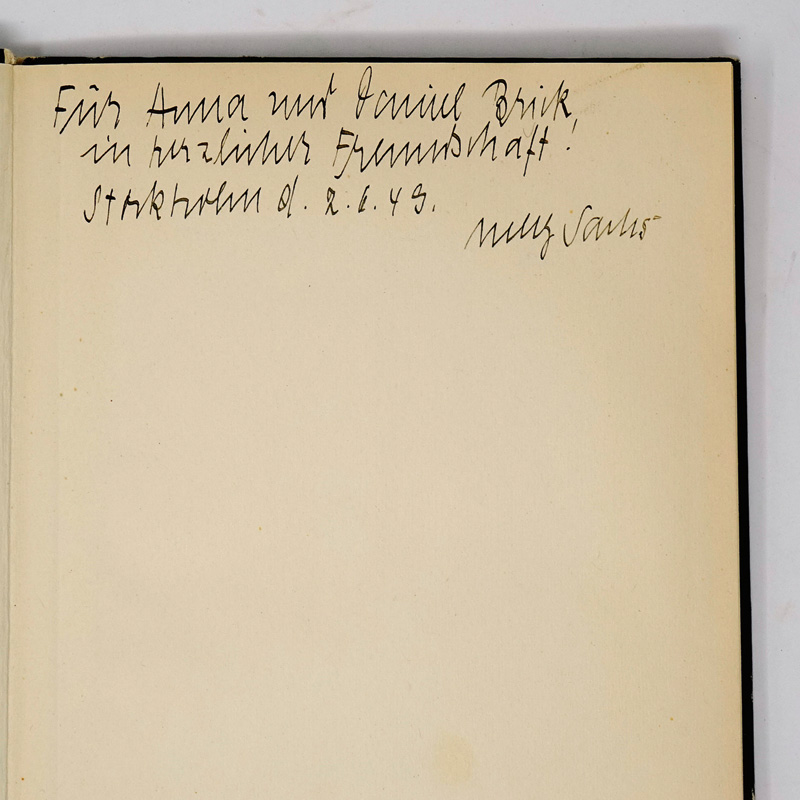 Für Anna und Daniel Brick,
in herzlicher Freundschaft!
Stockholm d. 2.6.49.
Nelly Sachs